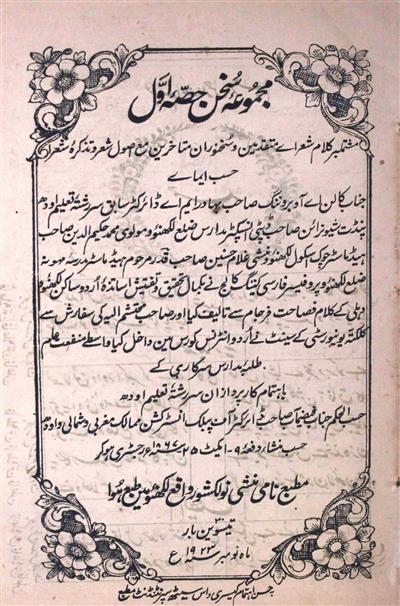 مجموعۂ سخن حصۂ اوّل
مشتملبر کلام شعراے متقدمین و سخنوران متاخرین مع اصول شعر و تذکرۂ شعرا
حسب ایماے
جناب کالن اے آر بروننگ صاحب بہادر ایم اے ڈائرکٹر سابق سررشتۂ تعلیم اودھ
پنڈت شیونراین صاحب ڈپٹی انسپکٹر مدارس ضلع لکھنؤ و مولوی محمد حکیم الدین صاحب
ہیڈ ماسٹر چوک اسکول لکھنؤ و منشی غلام حسنین صاحب قدر مرحوم ہیڈ ماسٹر مدرسہ مہونہ
ضلع لکھنؤ و پروفیسر فارسی کیننگ کالج نے بکمال تحقیق و تفتیش اساتذۂ اردو ساکن لکھنؤ و
دہلی کے کلام فصاحت فرجام سے تالیف کیا اور صاحب محتشم الیہ کی سفارش سے
کلکتہ یونیورسٹی کے سینٹ نے اردو انٹرنس کورس مین داخل کیا واسطے منفعت علم
طلبۂ مدارس سرکاری کے
باہتمام کارپردازان سررشتۂ تعلیم اودھ
حسب الحکم جناب فیضمآب صاحب ڈائرکٹر آف پبلک انسٹرکشن ممالک مغربی و شمالی و اودھ
حسب منشاء دفعہ ۹ - ایکٹ ۲۵ ۱۸۶۷ء رجسٹری ہوکر
مطبع نامی منشی نولکشور واقع لکھنؤ مین طبع ہوا
تیتسوین بار
ماہ نومبر سنہ ۱۹۲۳ع
بحسن اہتمام کیسری داس سیٹھ سپرنٹنڈنٹ مطبع